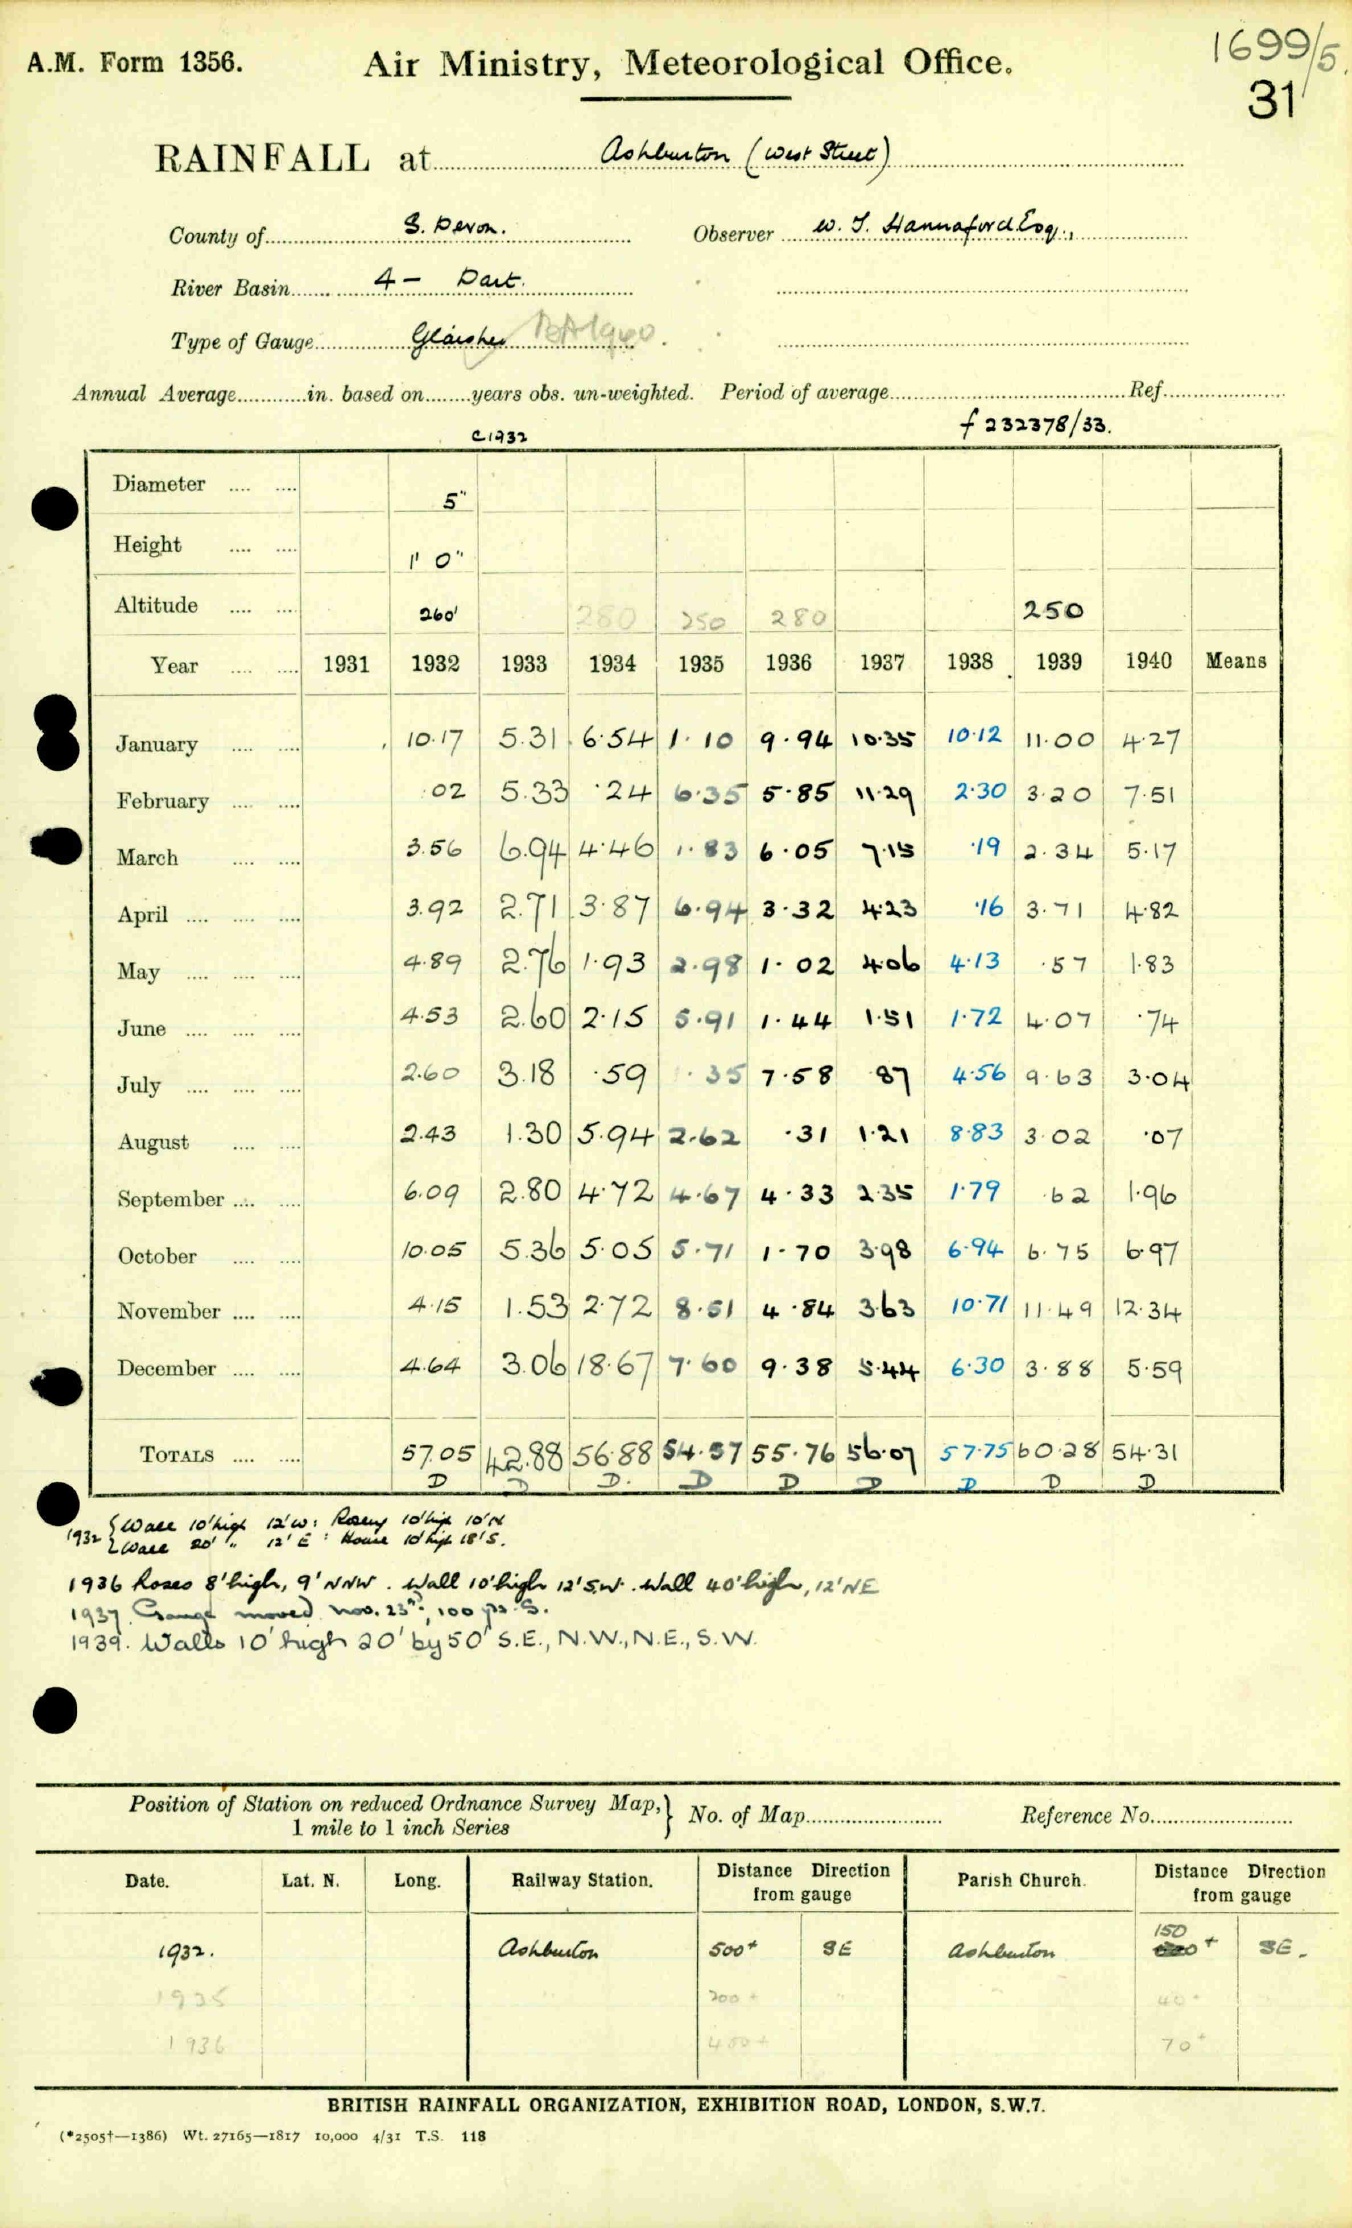 1699/5.
A.M. Form 1356. Air Ministry, Meteorological Office.
31
RAINFALL at Ashburton (West Street)
County of S. Devon. Observer W. J. Hannaford Esq.,
River Basin 4 — Dart.
Type of Gauge Glaisher
Annual Average in. based on years obs. un-weighted. Period of average Ref.
C1932 f 232378/33.
Diameter .... .... 5"
Height .... .... 1' 0"
Altitude .... .... 260' 280 250 280 250
Year .... .... 1931 1932 1933 1934 1935 1936 1937 1938 1939 1940 Means
January .... .... 10.17 5.31 6.54 1.10 9.94 10.35 10.12 11.00 4.27
February .... .... .02 5.33 .24 6.35 5.85 11.29 2.30 3.20 7.51
March .... .... 3.56 6.94 4.46 1.83 6.05 7.15 .19 2.34 5.17
April .... .... .... 3.92 2.71 3.87 6.94 3.32 4.23 .16 3.71 4.82
May .... .... .... 4.89 2.76 1.93 2.98 1.02 4.06 4.13 .57 1.83
June .... .... .... 4.53 2.60 2.15 5.91 1.44 1.51 1.72 4.07 .74
July .... .... .... 2.60 3.18 .59 .35 7.58 .87 4.56 9.63 3.04
August .... .... 2.43 1.30 5.94 2.62 .31 1.21 8.83 3.02 .07
September .... .... 6.09 2.80 4.72 4.67 4.33 2.35 1.79 .62 1.96
October .... .... 10.05 5.36 5.05 5.71 1.70 3.98 6.94 6.75 6.97
November .... .... 4.15 1.53 2.72 8.51 4.84 3.63 10.71 11.49 12.34
December .... .... 4.64 3.06 18.67 7.60 9.38 5.44 6.30 3.88 5.59
TOTALS .... .... 57.05 42.88 56.88 54.57 55.76 56.07 57.75 60.28 54.31
D D D. D D D D D D
1932 {Wall 10' high 12' W: 10' high 10' N
{Wall 20' " 12' E: House 10' high 18' S.
1936 Roses 8' high, 9' NNW. Wall 10' high 12' SW. Wall 40' high, 12' NE
1937. Gauge moved Nov. 23rd, 100 yds S.
1939. Walls 10' high 20' by 50' S.E., N.W., N.E., S.W.
Position of Station on reduced Ordnance Survey Map,} No. of Map Reference No.
1 mile to 1 inch Series
Date. Lat. N. Long. Railway Station. Distance Direction from gauge Parish Church. Distance Direction from gauge
1932. Ashburton 500+ SE Ashburton 150+ SE.
1935 200+ " 40+
1936 400+ 70+
BRITISH RAINFALL ORGANIZATION, EXHIBITION ROAD, LONDON, S.W.7.
(*2505†—1386) Wt. 27165—1817 10,000 4/31 T.S. 118